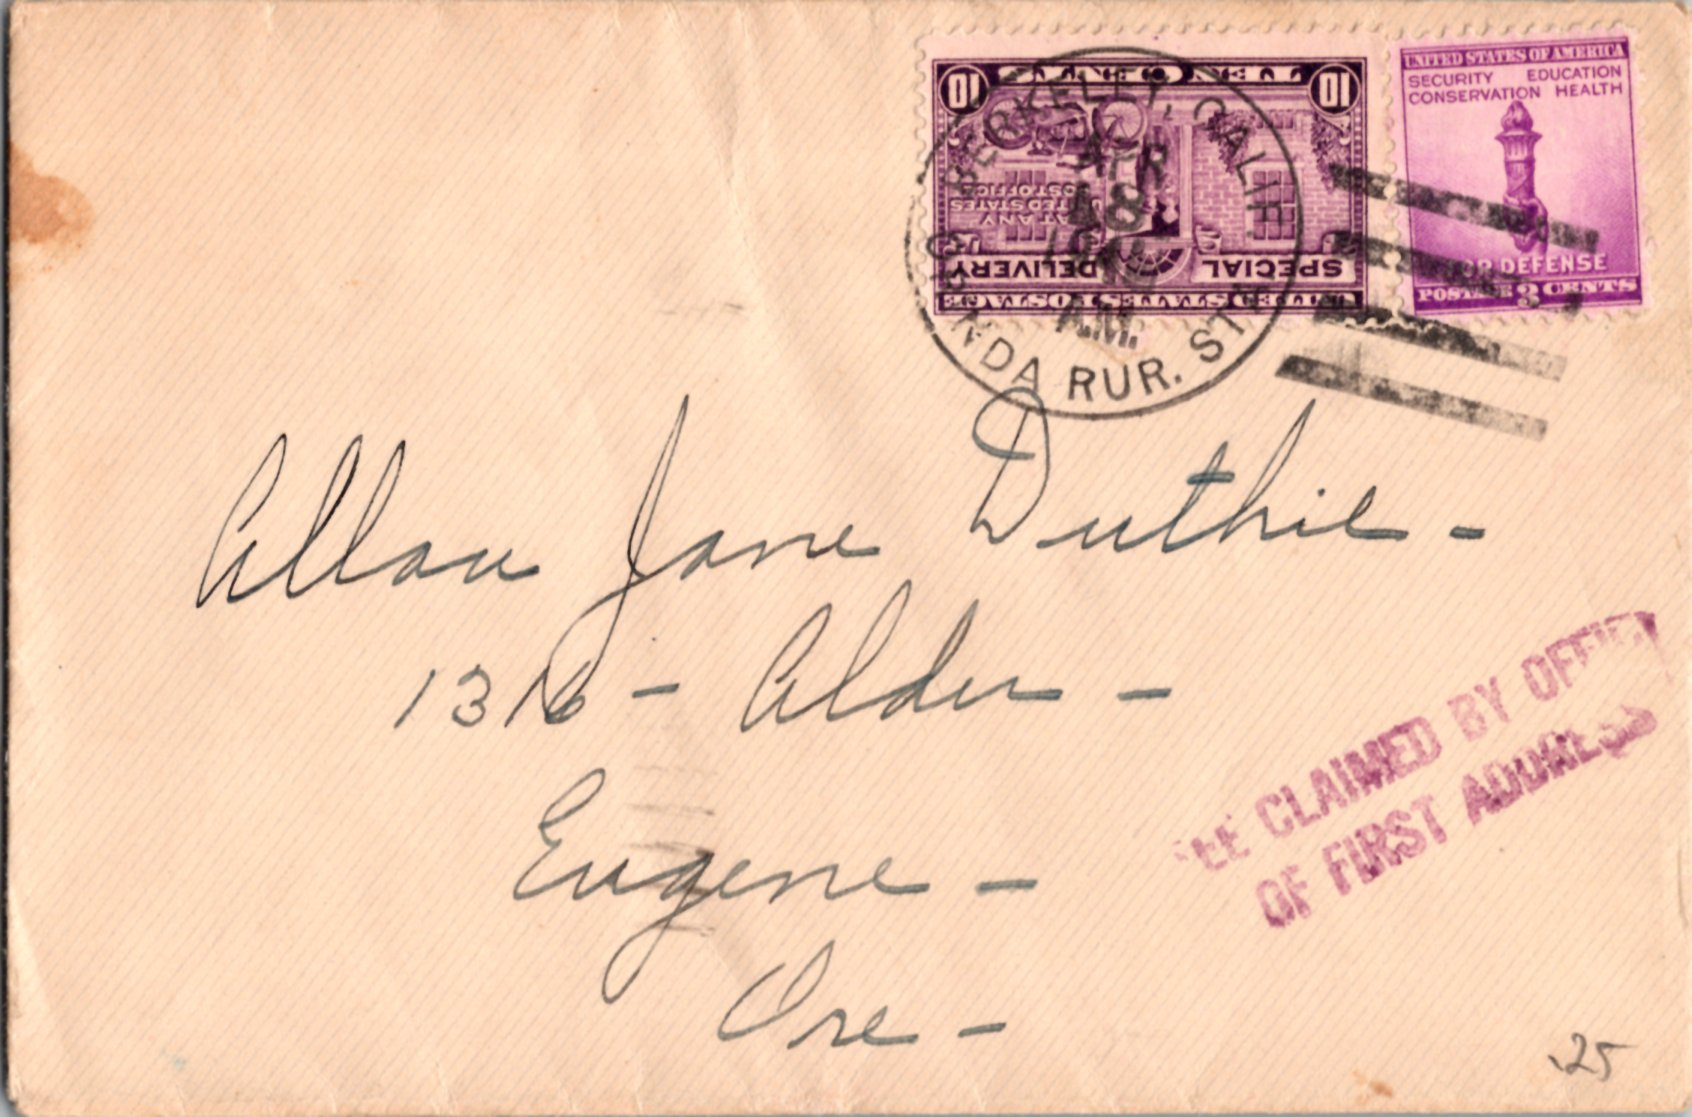 UNITED STATES OF AMERICA
SECURITY EDUCATION
CONSERVATION HEALTH
FOR DEFENSE
POSTAGE 3 CENTS
TEN CENTS
10 10
AT ANY
UNITED STATES
POST OFFICE
SPECIAL DELIVERY
UNITED STATES POSTAGE
BERKELEY, CALIF.
APR
8
AM
RUR. STA.
Allan Jane Duthie -
1316 - Alder -
Eugene -
Ore -
FEE CLAIMED BY OFFICE
OF FIRST ADDRESS
.25